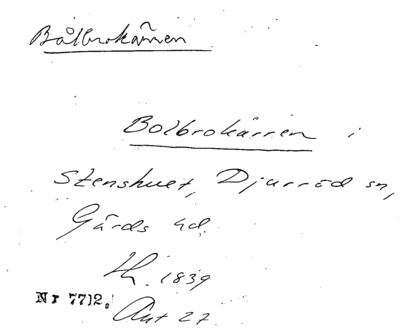 Bålbrokärren
Bolbrokärren i
Stenshuet, Djurröd sn,
Gärds hd.
Lh. 1839
Nr 7712. Aut 27